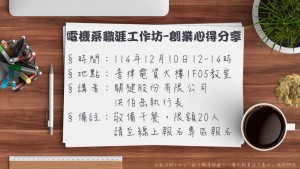 電機系職涯工作坊-創業心得分享
§時間：114年12月10日12-14時
§地點：音律電資大樓1F05教室
§講者：關鍵股份有限公司
洪伯岳執行長
§備註：敬備午餐，限額20人
請至線上報名專區報名